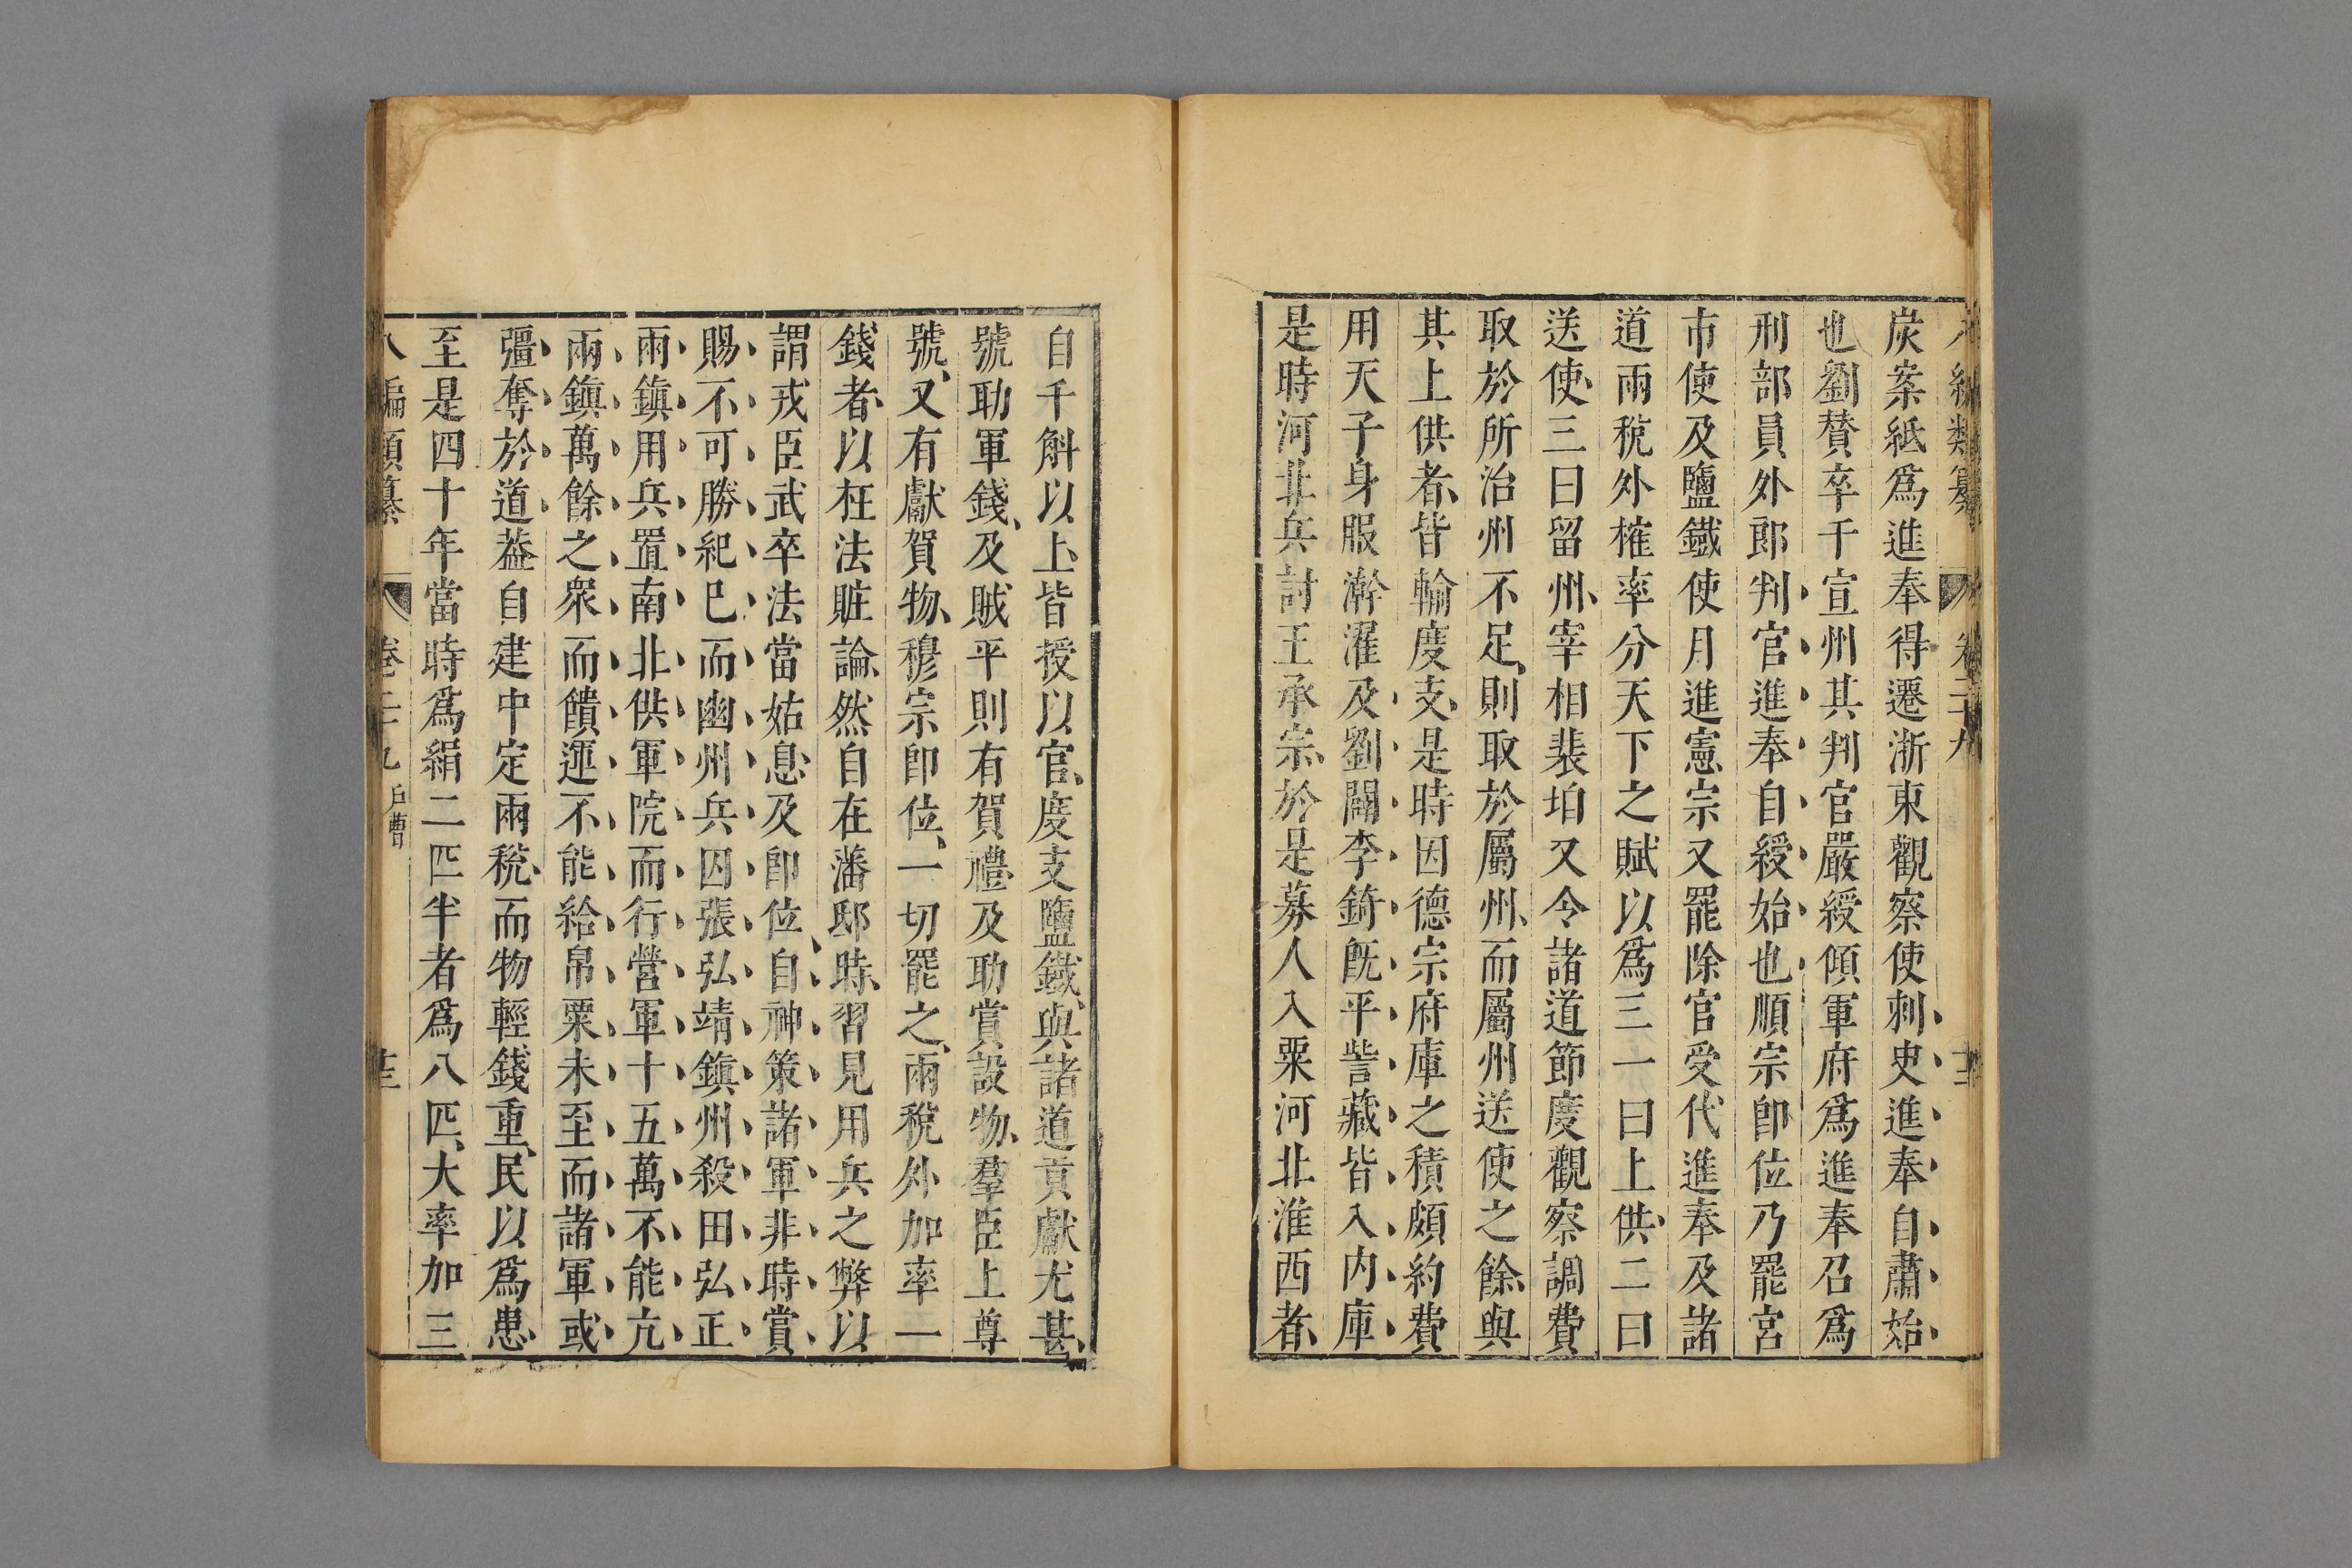 炭案紙爲進奉得遷浙東觀察使刺史進奉自肅始
也劉贊卒于宣州其判官嚴綬傾軍府爲進奉召爲
刑部員外郎判官進奉自綬始也順宗卽位乃罷宮
市使及鹽鐵使月進憲宗又罷除官受代進奉及諸
道兩稅外榷率分天下之賦以爲三一曰上供二曰
送使三曰留州宰相裴垍又令諸道節度觀察調費
取於所治州不足則取於屬州而屬州送使之餘與
其上供者皆輸度支是時因德宗府庫之積頗約費
用天子身服澣濯及劉闢李錡旣平訾藏皆入內庫
是時河北兵討王承宗於是募人入粟河北淮西者
自千斛以上皆授以官度支鹽鐵與諸道貢獻尤甚
號助軍錢及賊平則有賀禮及助賞設物羣臣上尊
號又有獻賀物穆宗卽位一切罷之兩稅外加率一
錢者以枉法贓論然自在藩邸時習見用兵之弊以
謂戎臣武卒法當姑息及卽位自神策諸軍非時賞
賜不可勝紀已而幽州兵囚張弘靖鎭州殺田弘正
兩鎭用兵置南北供軍院而行營軍十五萬不能亢
兩鎭萬餘之衆而饋運不能給帛粟未至而諸軍或
彊奪於道葢自建中定兩稅而物輕錢重民以爲患
至是四十年當時爲絹二匹半者爲八匹大率加三
八編類纂 卷二十九 戶曹 十三